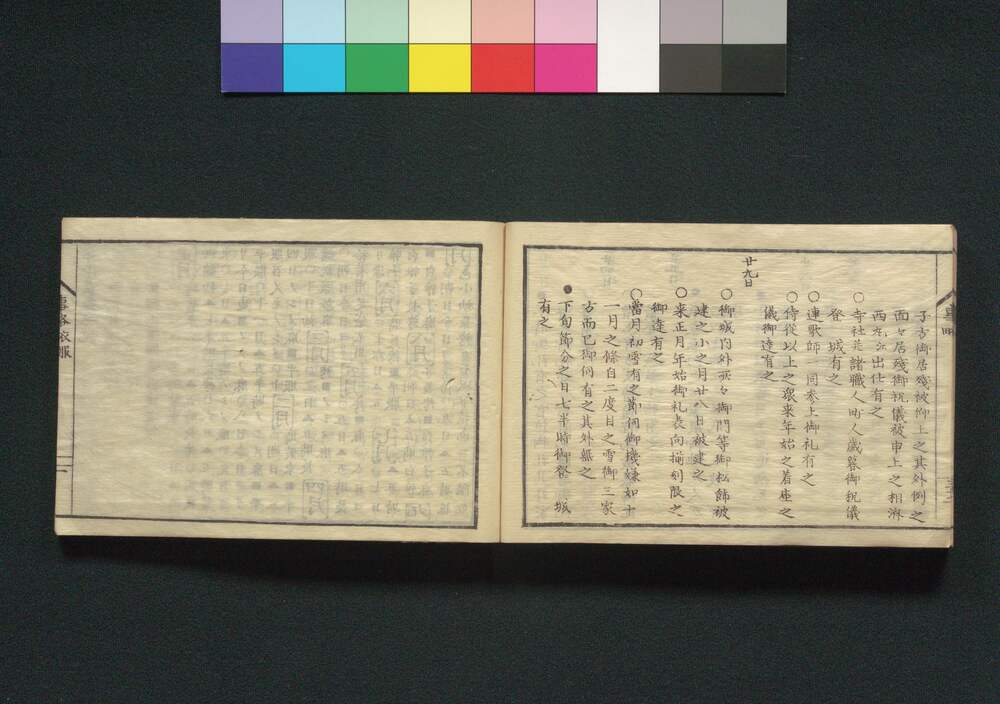 子方御居残被仰上之其外例之
面々居残御祝儀被申上之相済
西丸江出仕有之
○寺社并諸職人町人歳暮御祝儀
登 城有之
○連歌師一同参上御礼有之
○侍従以上之衆来年始之着座之
儀御達有之
廿九日
○御城内外所々御門等御松飾被
建之小之月廿八日被建之
○来正月年始御礼表向揃刻限之
御達有之
○當月初雪有之節伺御機嫌如十
一月之條自二度目之雪御三家
方而已御伺有之其外無之
●下旬節分之日七半時御登 城
有之